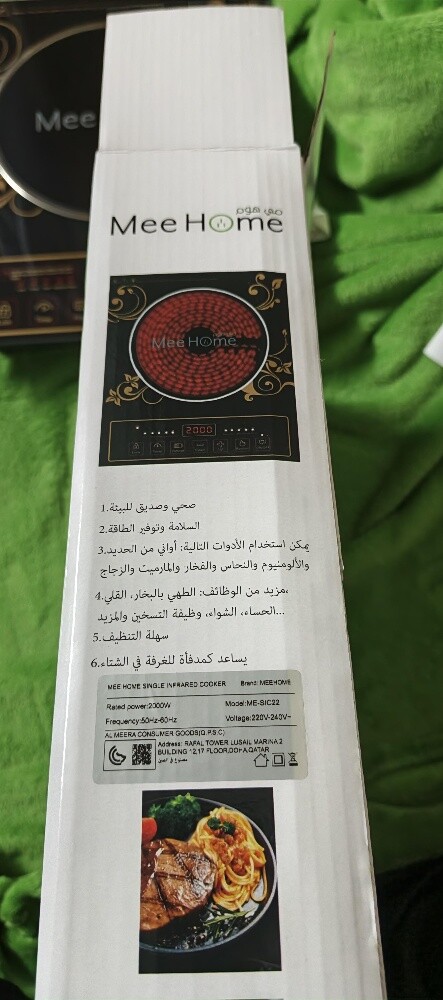 Mee
مي هوم
Mee Home
Mee Home
2000
1.صحي وصديق للبيئة
2.السلامة وتوفير الطاقة
3.يمكن استخدام الأدوات التالية: أواني من الحديد
والألومنيوم والنحاس والفخار والمارميت والزجاج
4.مزيد من الوظائف: الطهي بالبخار، القلي،
الحساء، الشواء، وظيفة التسخين والمزيد...
5.سهلة التنظيف
6.يساعد كمدفأة للغرفة في الشتاء
MEE HOME SINGLE INFRARED COOKER Brand: MEEHOME
Rated power:2000W Model:ME-SIC22
Frequency:50Hz-60Hz Voltage:220V-240V~
AL MEERA CONSUMER GOODS(Q.P.S.C)
Address: RAFAL TOWER LUSAIL MARINA 2
BUILDING 12,17 FLOOR,DOHA,QATAR